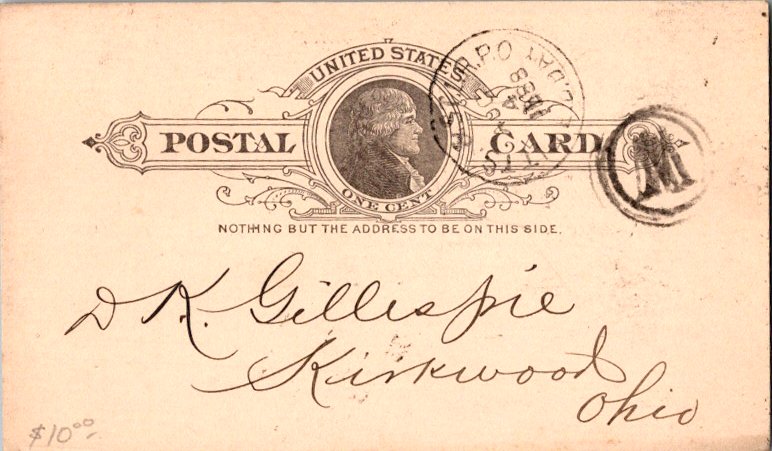 UNITED STATES
POSTAL CARD
ONE CENT
NOTHING BUT THE ADDRESS TO BE ON THIS SIDE.
R.P.O
DAY
W
D K. Gillespie
Kirkwood
Ohio
$10.00